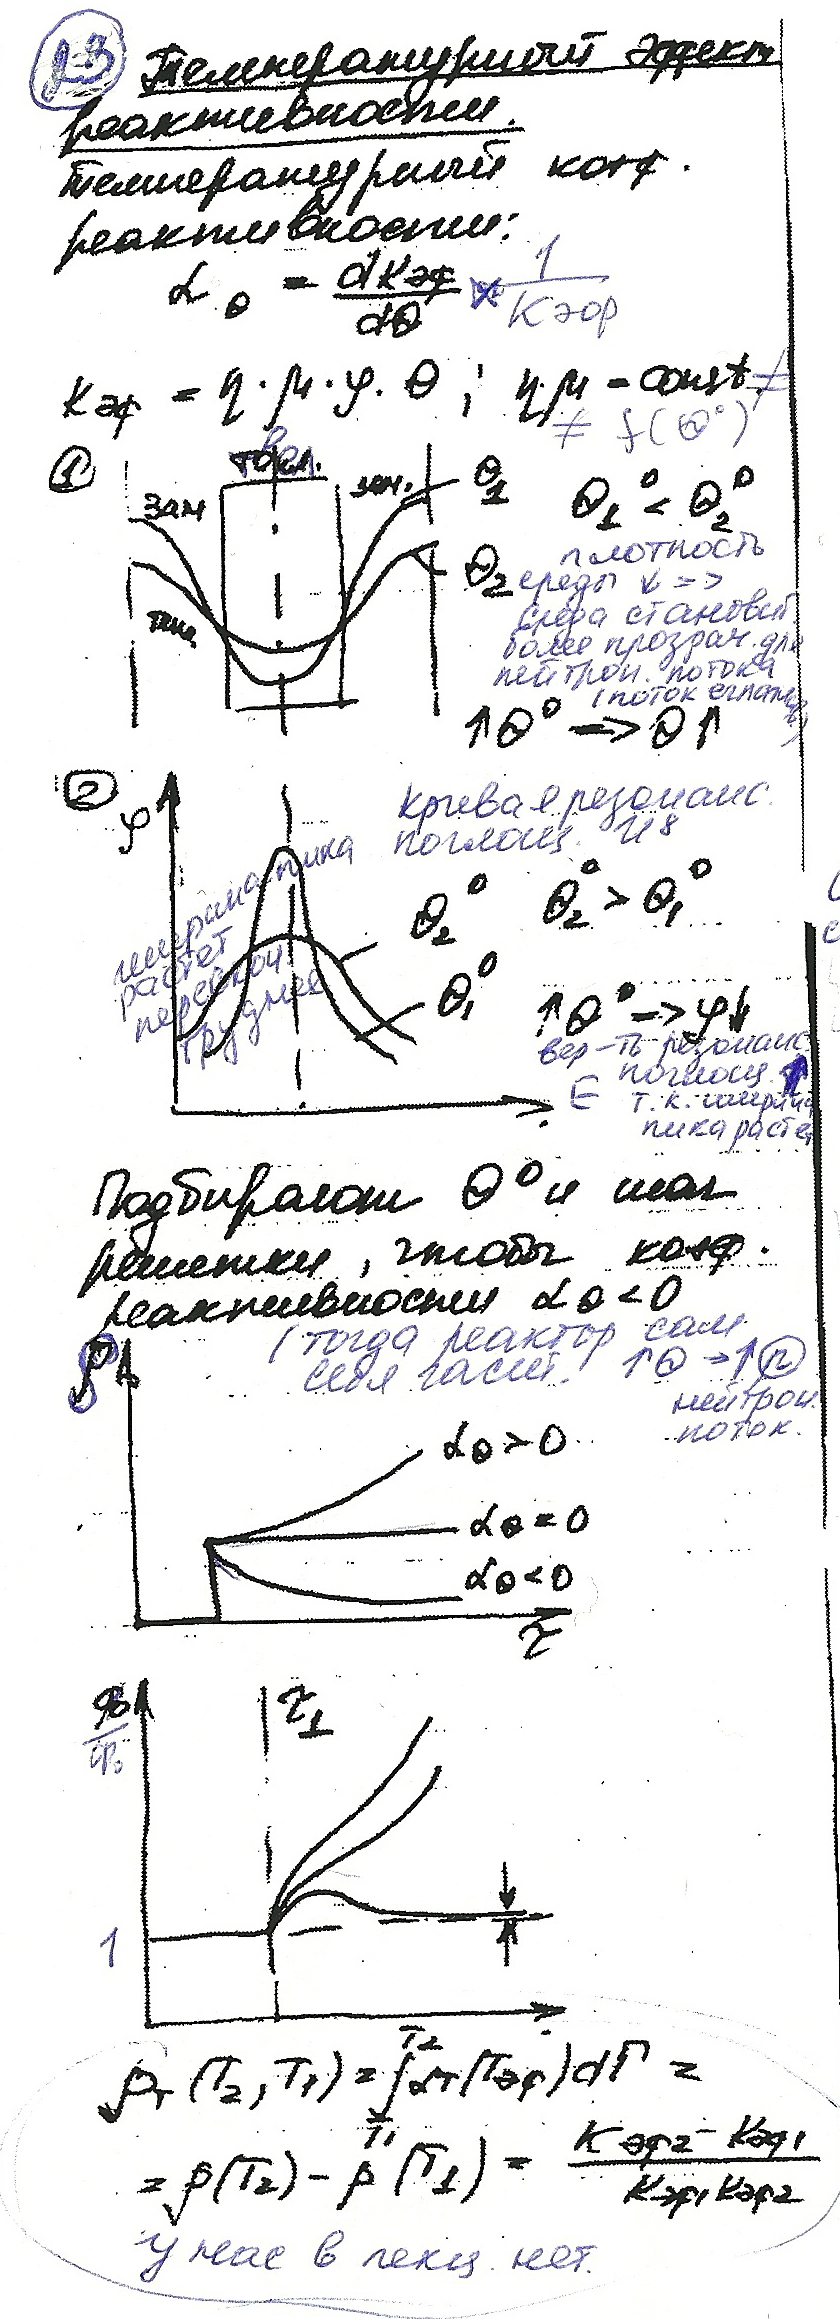 23 Температурный эффект
реактивности.
Температурный коэф.
реактивности:
α θ = dKэф/dθ × 1/Kэф
Kэф = η·μ·φ·θ ; η·μ = const ≠
≠ f(θ°)
① твэл.
зам зам. θ1 θ1° < θ2°
плотность
θ2 среды ↓ =>
среда становит
более прозрач. для
тепл. нейтрон. потока
(поток сглажив)
↑θ° => θ↑
② φ Кривая резонанс.
поглощ. U8
ширина пика
растет
θ2° θ2° > θ1°
первонач
труднее
θ1° ↑θ° -> φ↓
вер-ть резонанс.
поглощ. ↑
E т.к. ширина
пика растет
Подбирают θ° и шаг
решетки, чтобы коэф.
реактивности αθ < 0
(тогда реактор сам
себя гасит. ↑θ -> ↑n
нейтрон.
поток.
ρ
αθ > 0
αθ = 0
αθ < 0
τ
φ/φ0 τ1
1
ρT (T2, T1) = ∫T1T2 αT(Tэф)dT =
= ρ(T2) - ρ(T1) = Kэф2 - Kэф1 / Kэф1 Kэф2
у нас в лекц. нет.